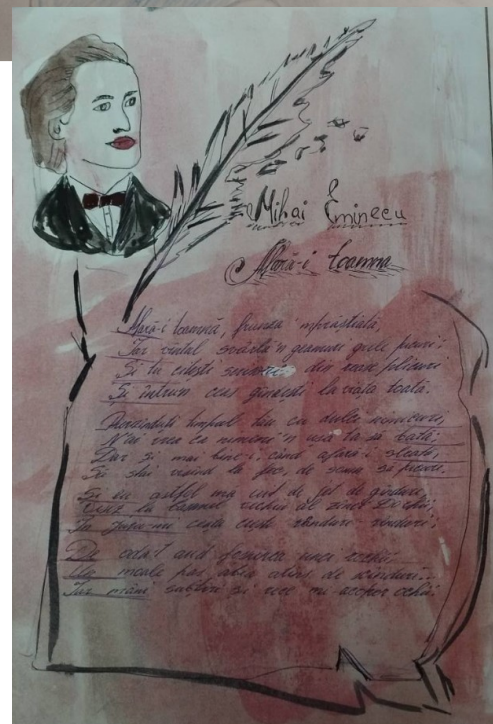 Mihai Eminecu
Afară-i toamna
Afară-i toamnă, frunza 'mprăștiată,
Iar vântul svârlă 'n geamuri grele picuri;
Și tu citești scrisori din roase plicuri
Și într-un ceas gândești la viața toată.
Pierzându-ți timpul tău cu dulci nimicuri,
N'ai vrea ca nimeni 'n ușa ta să bată;
Dar și mai bine-i, când afară-i sloată,
Să stai visând la foc, de somn să picuri.
Și eu astfel mă uit din jeț de gânduri,
Visez la basmul vechiu al zinei Dochii;
În jurul meu ceața crește rânduri, rânduri;
De odat' aud foșnirea unei rochii,
Un moale pas abia atins de scânduri...
Iar mâni subțiri și reci mi-acopăr ochii.